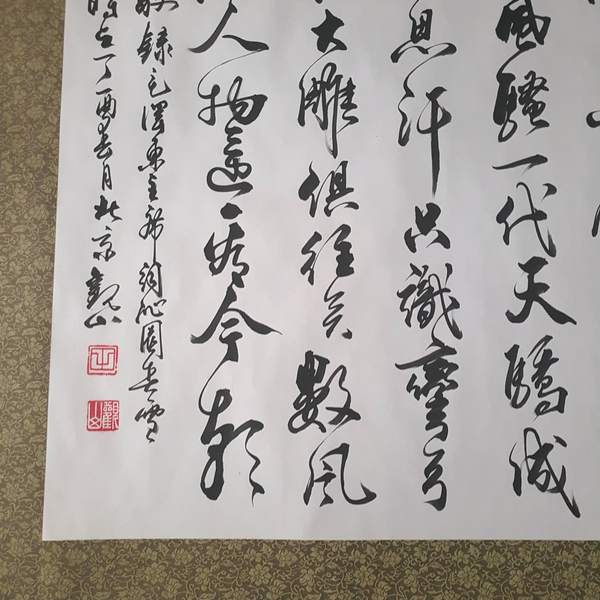 風騷一代天驕成
思汗只識彎弓
大雕俱往矣數風
人物還看今朝
敬錄毛澤東主席詞沁園春雪
時在丁酉春月北京觀山
觀山